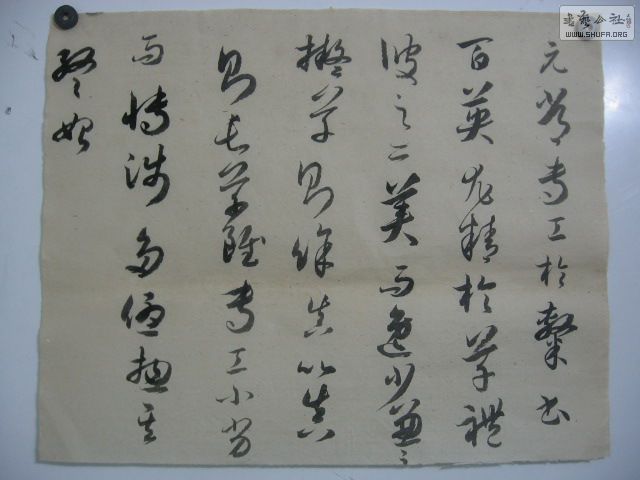 元常專工於隸書
百英尤精於草體
彼之二美而逸少兼之
擬草則餘真比真
則長草雖專工小劣
而博涉多優總其
終始
書藝公社
WWW.SHUFA.ORG